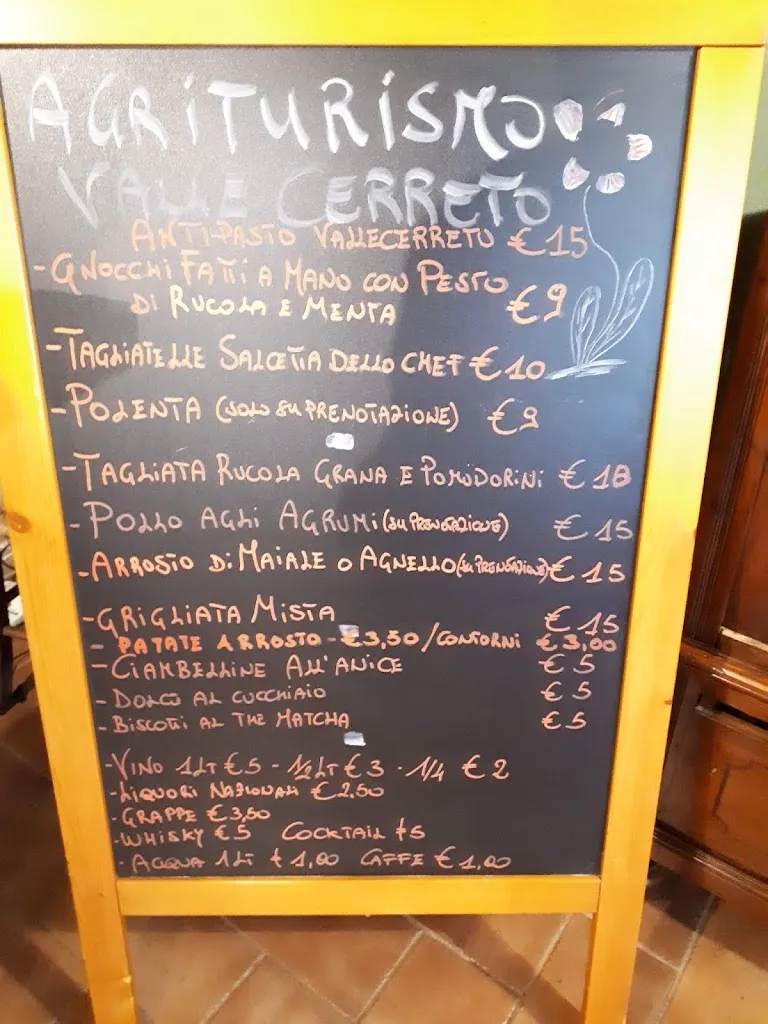 AGRITURISMO
VALLE CERRETO
ANTIPASTO VALLECERRETO €15
- GNOCCHI FATTI A MANO CON PESTO
DI RUCOLA E MENTA €9
- TAGLIATELLE SALCETIA DELLO CHEF €10
- POLENTA (SOLO SU PRENOTAZIONE) €9
- TAGLIATA RUCOLA GRANA E POMODORINI €18
- POLLO AGLI AGRUMI (SU PRENOTAZIONE) €15
- ARROSTO DI MAIALE O AGNELLO (SU PRENOTAZIONE) €15
- GRIGLIATA MISTA €15
- PATATE ARROSTO - €3,50 / CONTORNI €3,00
- CIAMBELLINE ALL'ANICE €5
- DOLCI AL CUCCHIAIO €5
- BISCOTTI AL THE MATCHA €5
- VINO 1LT €5 - 1/2 LT €3 - 1/4 €2
- LIQUORI NAZIONALI €2,50
- GRAPPE €3,50
- WHISKY €5 COCKTAIL €5
- ACQUA 1LT €1,00 CAFFE €1,00